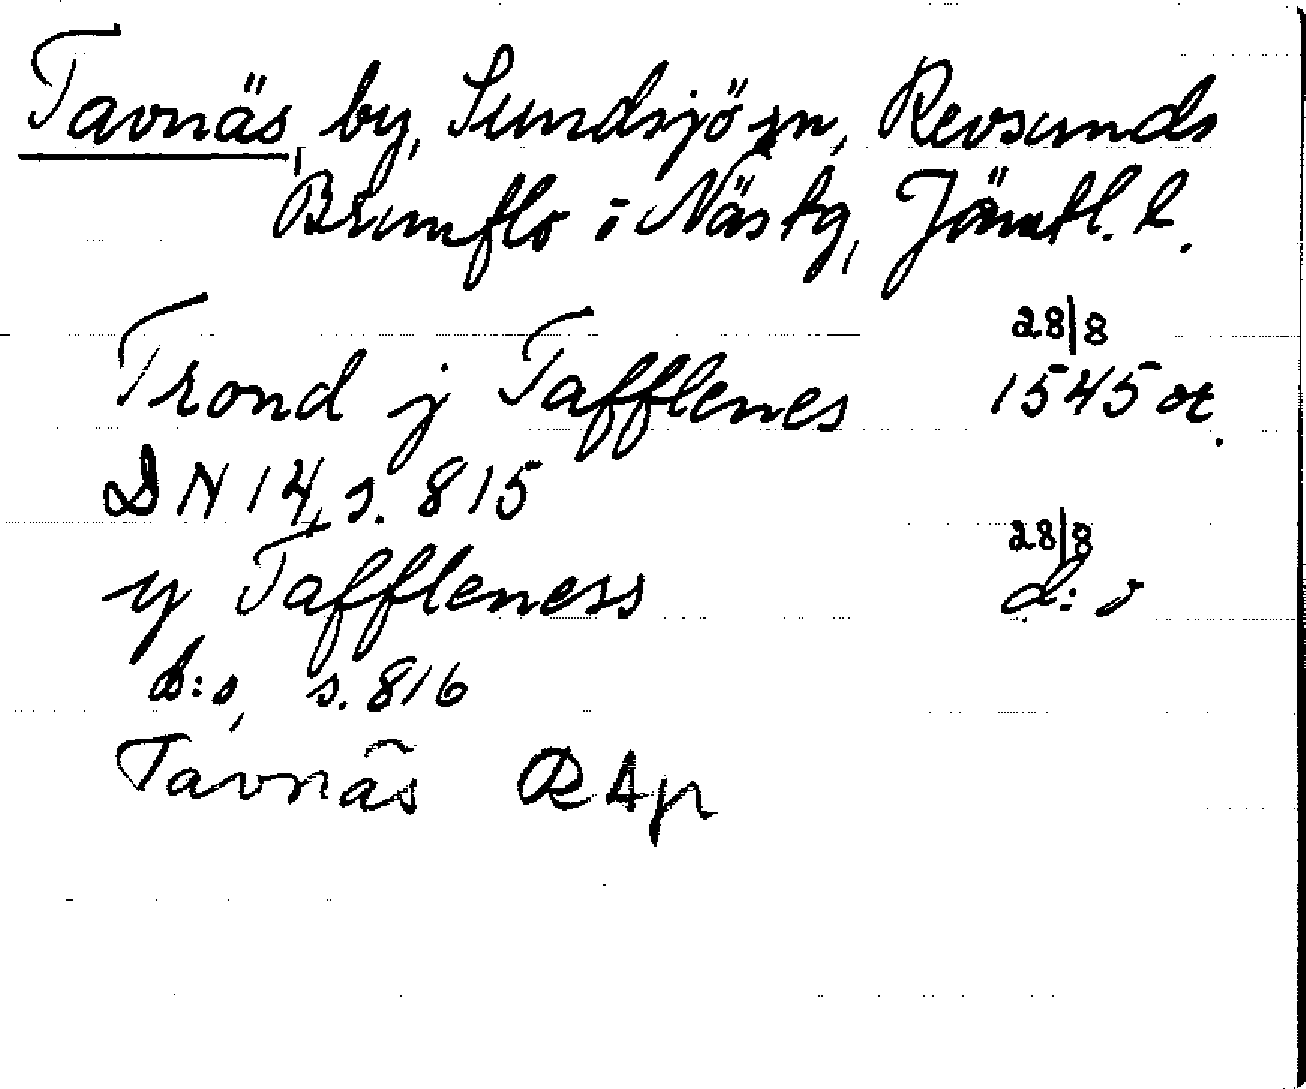 Tavnäs, by, Sundsjö sn, Revsunds
Brunflo i Näs tg, Jämtl. l.
Trond j Tafflenes 28/8 1545 or.
DN 14, s. 815
y Taffleness 28/8 d:o
d:o, s. 816
Tavnäs RAjr